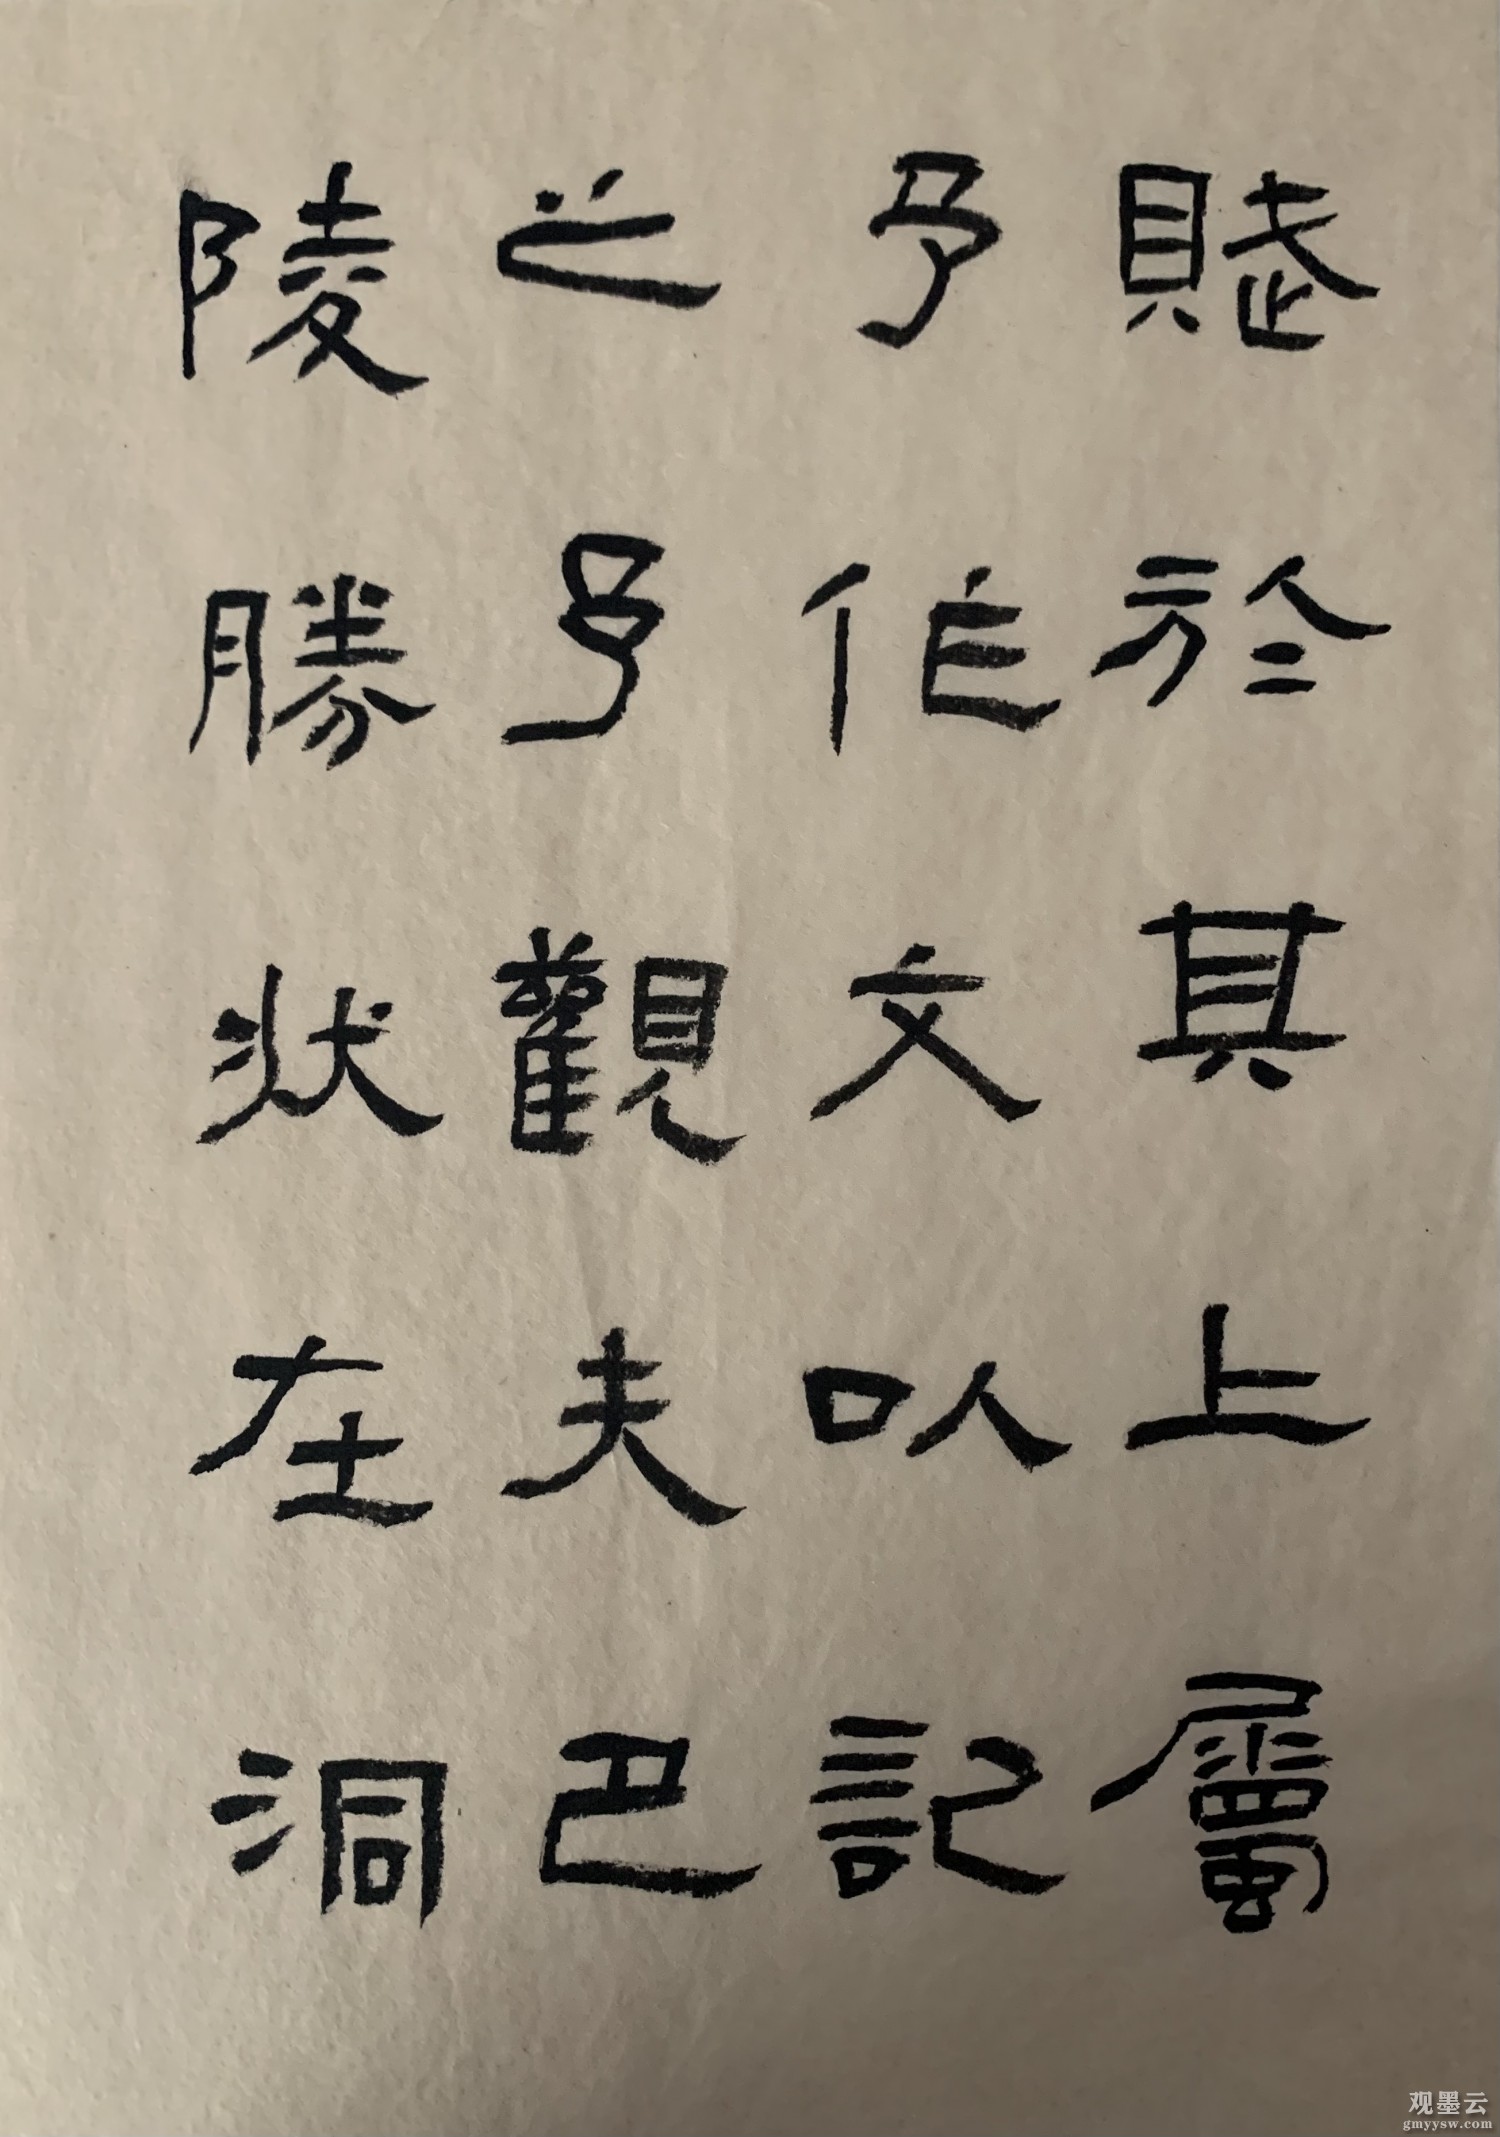 賦於其上屬
予作文以記
之予觀夫巴
陵勝狀在洞
观墨云
gmyysw.com